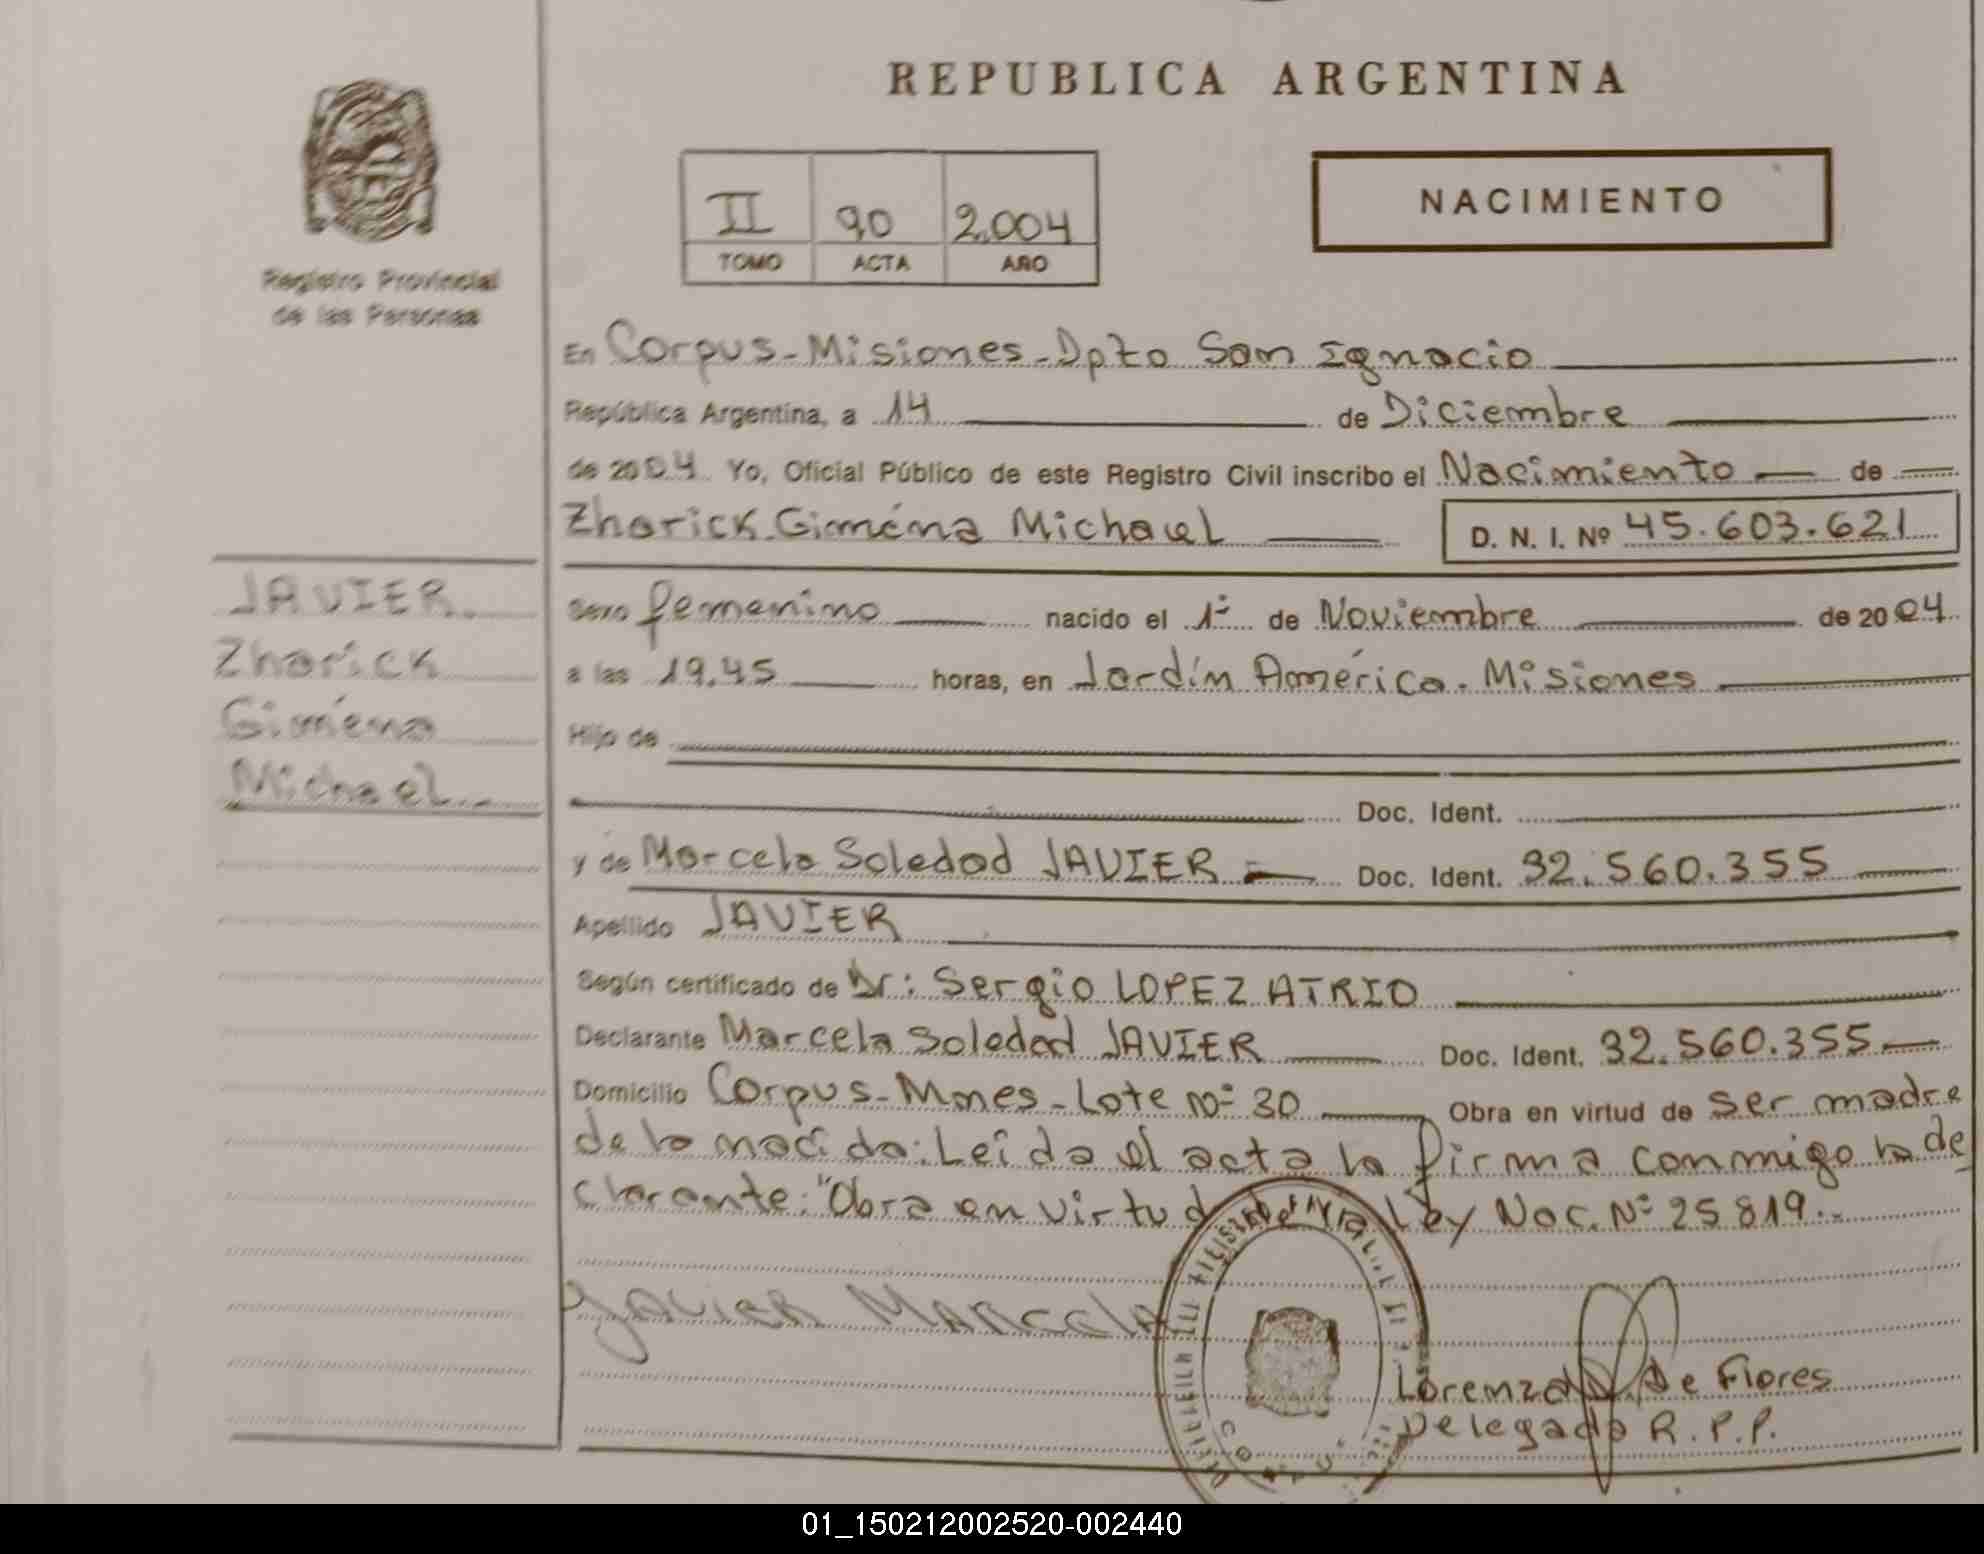 REPUBLICA ARGENTINA
Registro Provincial
de las Personas
II 90 2.004
TOMO ACTA AÑO
NACIMIENTO
En Corpus-Misiones-Dpto San Ignacio
República Argentina, a 14 de Diciembre
de 2004 Yo, Oficial Público de este Registro Civil inscribo el Nacimiento de
Zharick Giména Michael D. N. I. Nº 45.603.621
JAVIER
Zharick
Giména
Michael
Sexo femenino nacido el 1º de Noviembre de 2004
a las 19.45 horas, en Jardín América. Misiones
Hijo de
Doc. Ident.
y de Marcela Soledad JAVIER Doc. Ident. 32.560.355
Apellido JAVIER
Según certificado de Dr: Sergio LOPEZ ATRIO
Declarante Marcela Soledad JAVIER Doc. Ident. 32.560.355
Domicilio Corpus-Mnes-Lote Nº 30 Obra en virtud de ser madre
de la nacida: Leída el acta la firma conmigo la de
clarante: "Obra en virtud de la Ley Nac. Nº 25819.
Javier Marcela
Lorenza D. De Flores
Delegada R.P.P.
01_150212002520-002440